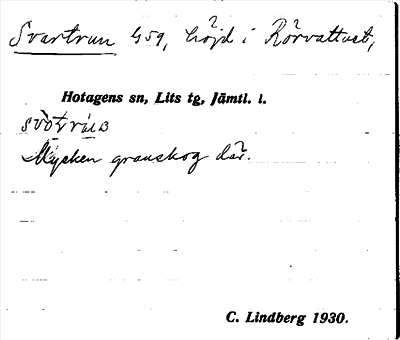 Svartrun 459, höjd i Rörvattnet,
Hotagens sn, Lits tg, Jämtl. l.
Mycken granskog där.
C. Lindberg 1930.